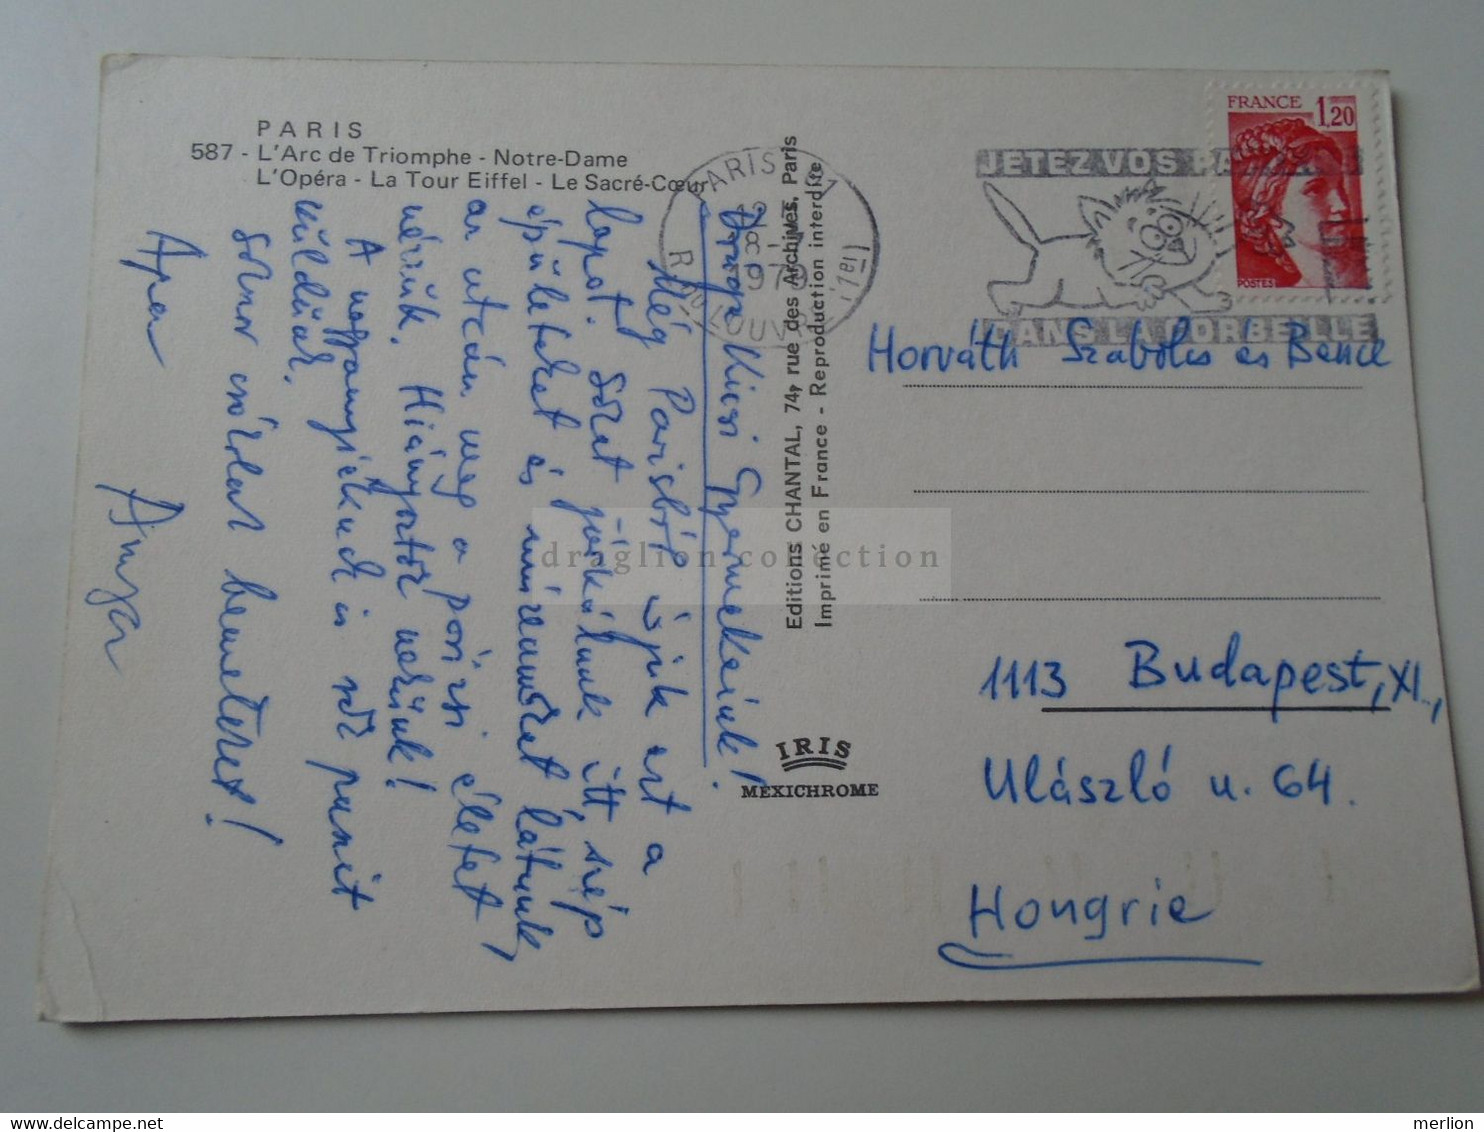 PARIS
587 - L'Arc de Triomphe - Notre-Dame
L'Opéra - La Tour Eiffel - Le Sacré-Cœur
Drága Kicsi Gyermekeink!
Még Parisból írjuk ezt a
lapot. Sokat járkálunk itt, szép
épületeket és múzeumokat látunk,
az utcán meg a párizsi életet
nézzük. Hiányoztok nekünk!
A nagymamájéknak is
küldünk.
Sokszor csókolunk benneteket!
Apa Anya
Editions CHANTAL, 74, rue des Archives, Paris
Imprimé en France - Reproduction interdite
IRIS
MEXICHROME
PARIS
18
1979
R. DU LOUVRE (1er)
JETEZ VOS PAPIERS
DANS LA CORBEILLE
FRANCE 1,20
POSTES
Horváth Szabolcs és Bence
1113 Budapest, XI.,
Ulászló u. 64.
Hongrie
draglion collection
merlion